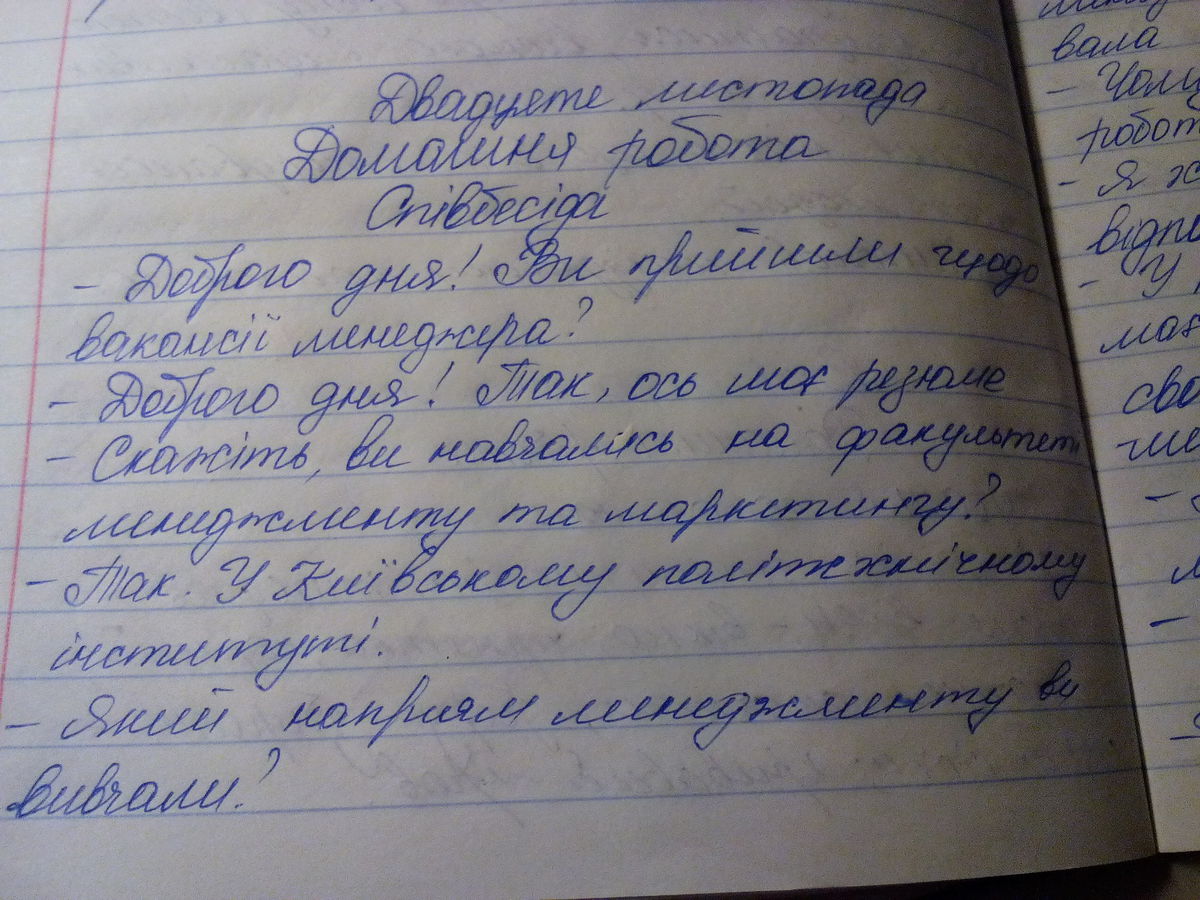 Двадцяте листопада
Домашня робота
Співбесіда
- Доброго дня! Ви прийшли щодо
вакансії менеджера?
- Доброго дня! Так, ось моє резюме
- Скажіть, ви навчались на факультеті
менеджменту та маркетингу?
- Так. У Київському політехнічному
інституті.
- Який напрям менеджменту ви
вивчали?
вала
-
робот
- Я
- У
має
сво